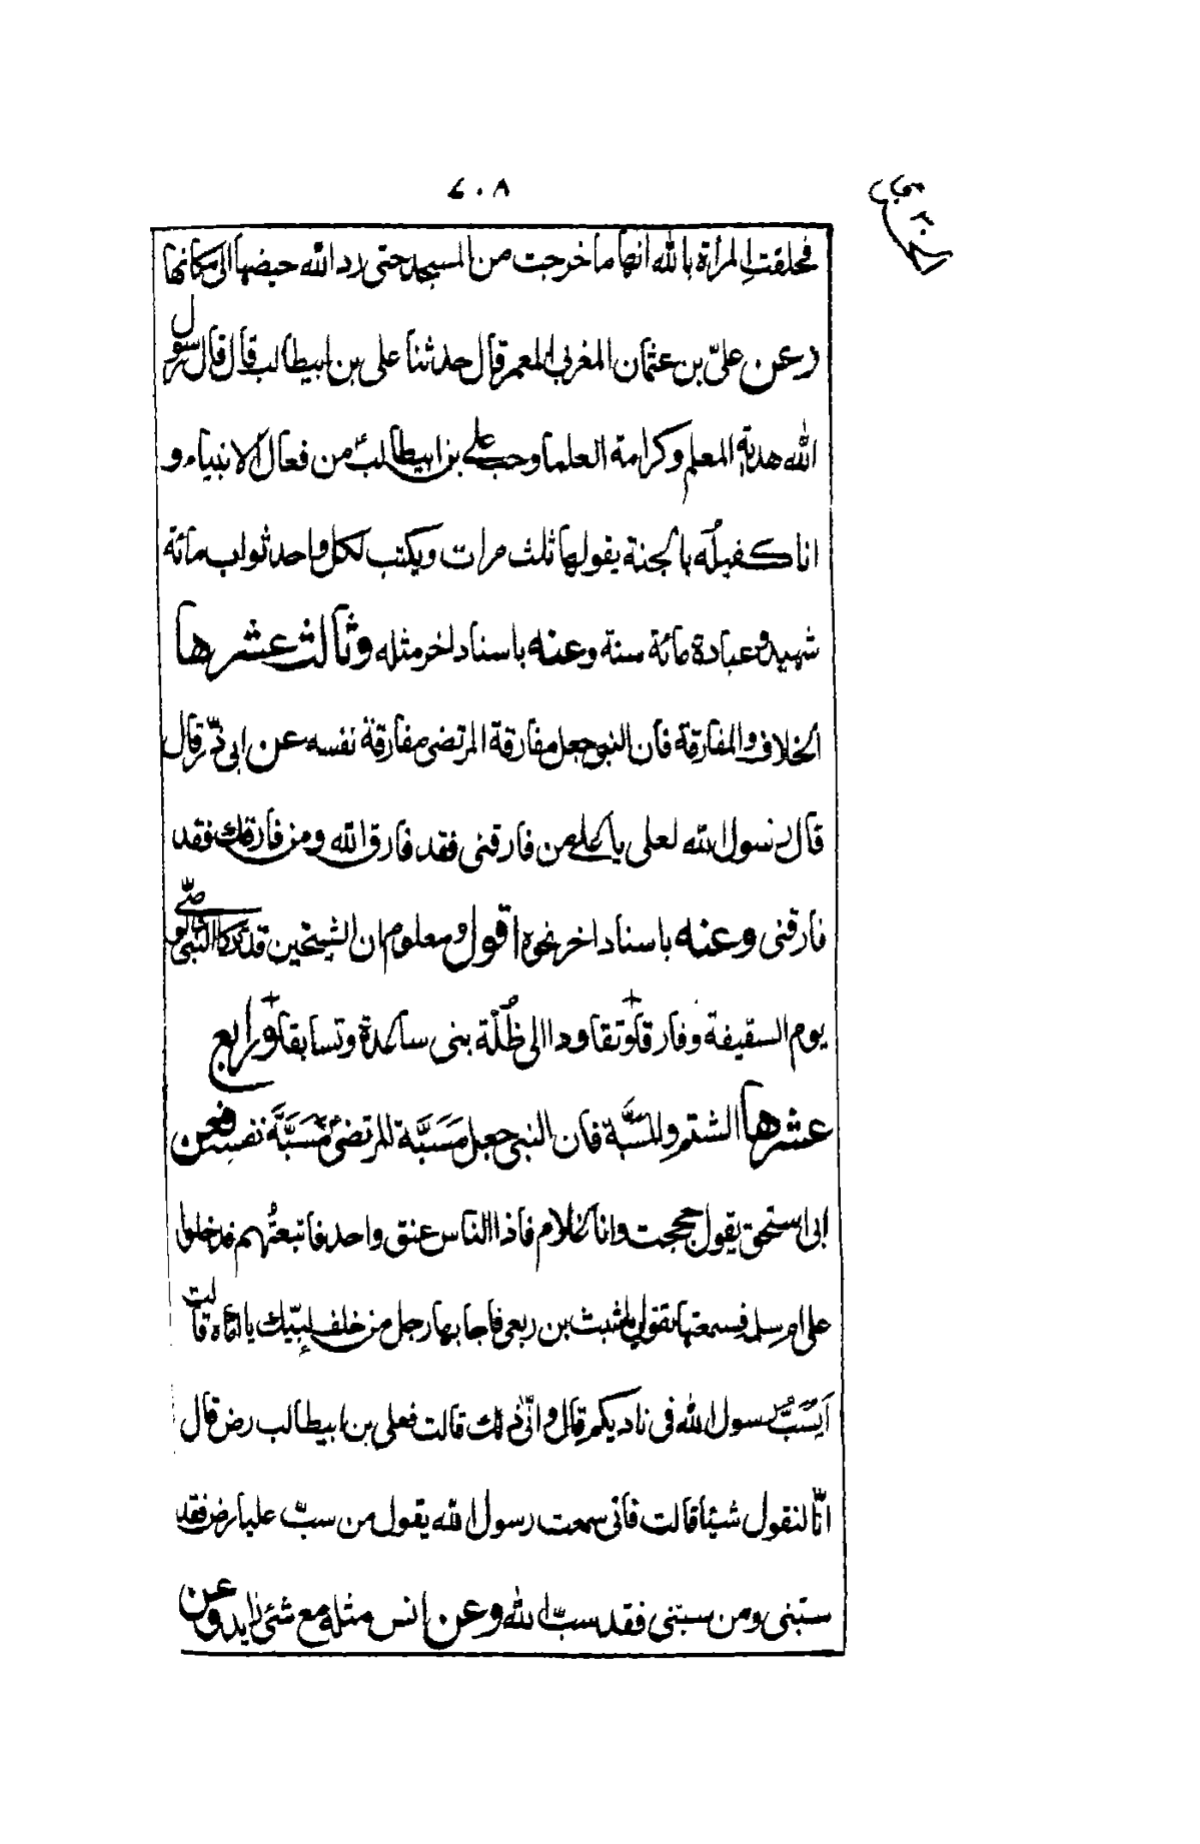 ٤٠٨
فحلفت المرأة بالله انها ما خرجت من المسجد حتى رد الله حيضها الى مكانها
وعن علىّ بن عثمان المغربى المعمر قال حدثنا على بن ابيطالب قال قال رسول
الله هدية المعلم وكرامة العلما وحب على بن ابيطالب من فعال الانبياء و
انا كفيله بالجنة يقولها ثلث مرات ويكتب لكل واحد ثواب مائة
شهيد وعبادة مائة سنة وعنه باسناد اخر مثله وثالث عشرها
الخلاف والمفارقة فان النبى جعل مفارقة المرتضى مفارقة نفسه عن ابى ذرّ قال
قال رسول الله لعلى يا على من فارقنى فقد فارق الله ومن فارقك فقد
فارقنى وعنه باسناد اخر نحوه اقول ومعلوم ان الشيخين قد تركا النبى صلّى
يوم السقيفة وفارقا وتقاودا الى ظُلّة بنى ساعدة وتسابقا ورابع
عشرها الشتم والمسبّة فان النبى جعل مَسَبَّة للمرتضى مَسَبَّة نفسه فعن
ابى اسحق يقول حججت وانا غلام فاذا الناس عنق واحد فاتبعتُهم فدخلوا
على ام سلمة فسمعتها تقول يا شبث بن ربعى فاجابها رجل من خلف لبّيك يا امّاه قالت
اَيُسَبُّ رسول الله فى ناديكم قال وانّى ذلك قالت فعلى بن ابيطالب رض قال
انّا لنقول شيئا قالت فانى سمعت رسول الله يقول من سبّ عليا رض فقد
سبّنى ومن سبّنى فقد سبّ الله وعن انس مثله مع شئ زايد وعن